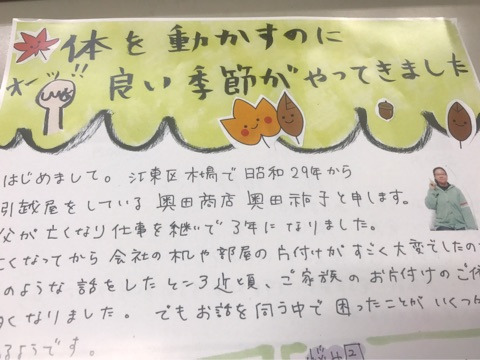 体を動かすのに
オーッ!!
良い季節がやってきました
はじめまして。江東区木場で昭和29年から
引越屋をしている奥田商店 奥田祐子と申します。
父が亡くなり仕事を継いで3年になりました。
亡くなってから会社の机や部屋の片付けがすごく大変だしたの
のような話をしたところ近頃、ご家族のお片付けのご依
多くなりました。でもお話を伺う中で困ったことがいくつか
あるようです。